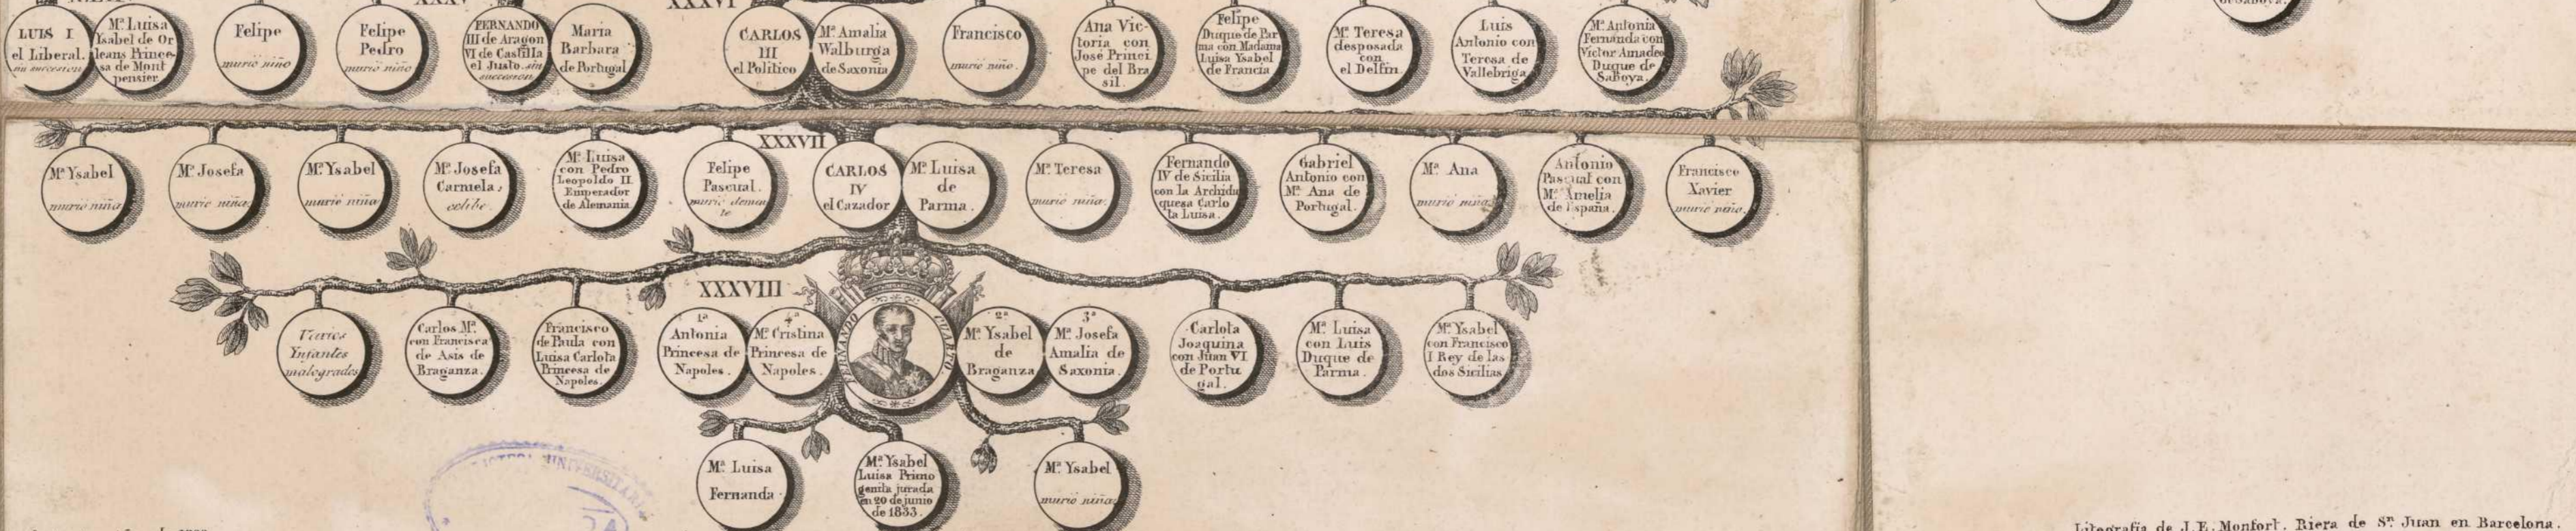 XXXVI
LUIS I
el Liberal.
sin succesion
Mª Luisa
Ysabel de Or
leans Prince-
sa de Mont
pensier.
Felipe
murió niño
Felipe
Pedro
murió niño
FERNANDO
III de Aragon
VI de Castilla
el Justo. sin
succession
Maria
Barbara
de Portugal
CARLOS
III
el Politico
Mª Amalia
Walburga
de Saxonia
Francisco
murió niño.
Ana Vic-
toria con
José Princi
pe del Bra
sil.
Felipe
Duque de Par
ma con Madama
Luisa Ysabel
de Francia
Mª Teresa
desposada
con
el Delfin.
Luis
Antonio con
Teresa de
Vallebriga.
Mª Antonia
Fernanda con
Victor Amadeo
Duque de
Saboya.
de Saboya.
XXXVII
Mª Ysabel
murió niña
Mª Josefa
murió niña
Mª Ysabel
murió niña
Mª Josefa
Carmela,
celibe.
Mª Luisa
con Pedro
Leopoldo II
Emperador
de Alemania
Felipe
Pascual.
murió demen
te
CARLOS
IV
el Cazador
Mª Luisa
de
Parma.
Mª Teresa
murió niña.
Fernando
IV de Sicilia
con la Archidu
quesa Carlo
ta Luisa.
Gabriel
Antonio con
Mª Ana de
Portugal.
Mª Ana
murió niña
Antonio
Pascual con
Mª Amelia
de España.
Francisco
Xavier
murió niño.
XXXVIII
Varios
Ynfantes
malogrados
Carlos Mª
con Francisca
de Asis de
Braganza.
Francisco
de Paula con
Luisa Carlota
Princesa de
Napoles.
1ª
Antonia
Princesa de
Napoles.
4ª
Mª Cristina
Princesa de
Napoles.
FERNANDO CUARTO
2ª
Mª Ysabel
de
Braganza
3ª
Mª Josefa
Amalia de
Saxonia.
Carlota
Joaquina
con Juan VI
de Portu
gal.
Mª Luisa
con Luis
Duque de
Parma.
Mª Ysabel
con Francisco
I Rey de las
dos Sicilias
Mª Luisa
Fernanda
Mª Ysabel
Luisa Primo
genita jurada
en 20 de junio
de 1833.
Mª Ysabel
murió niña
UNIVERSITARIA
Litografía de J.E. Monfort. Riera de Sn Juan en Barcelona.